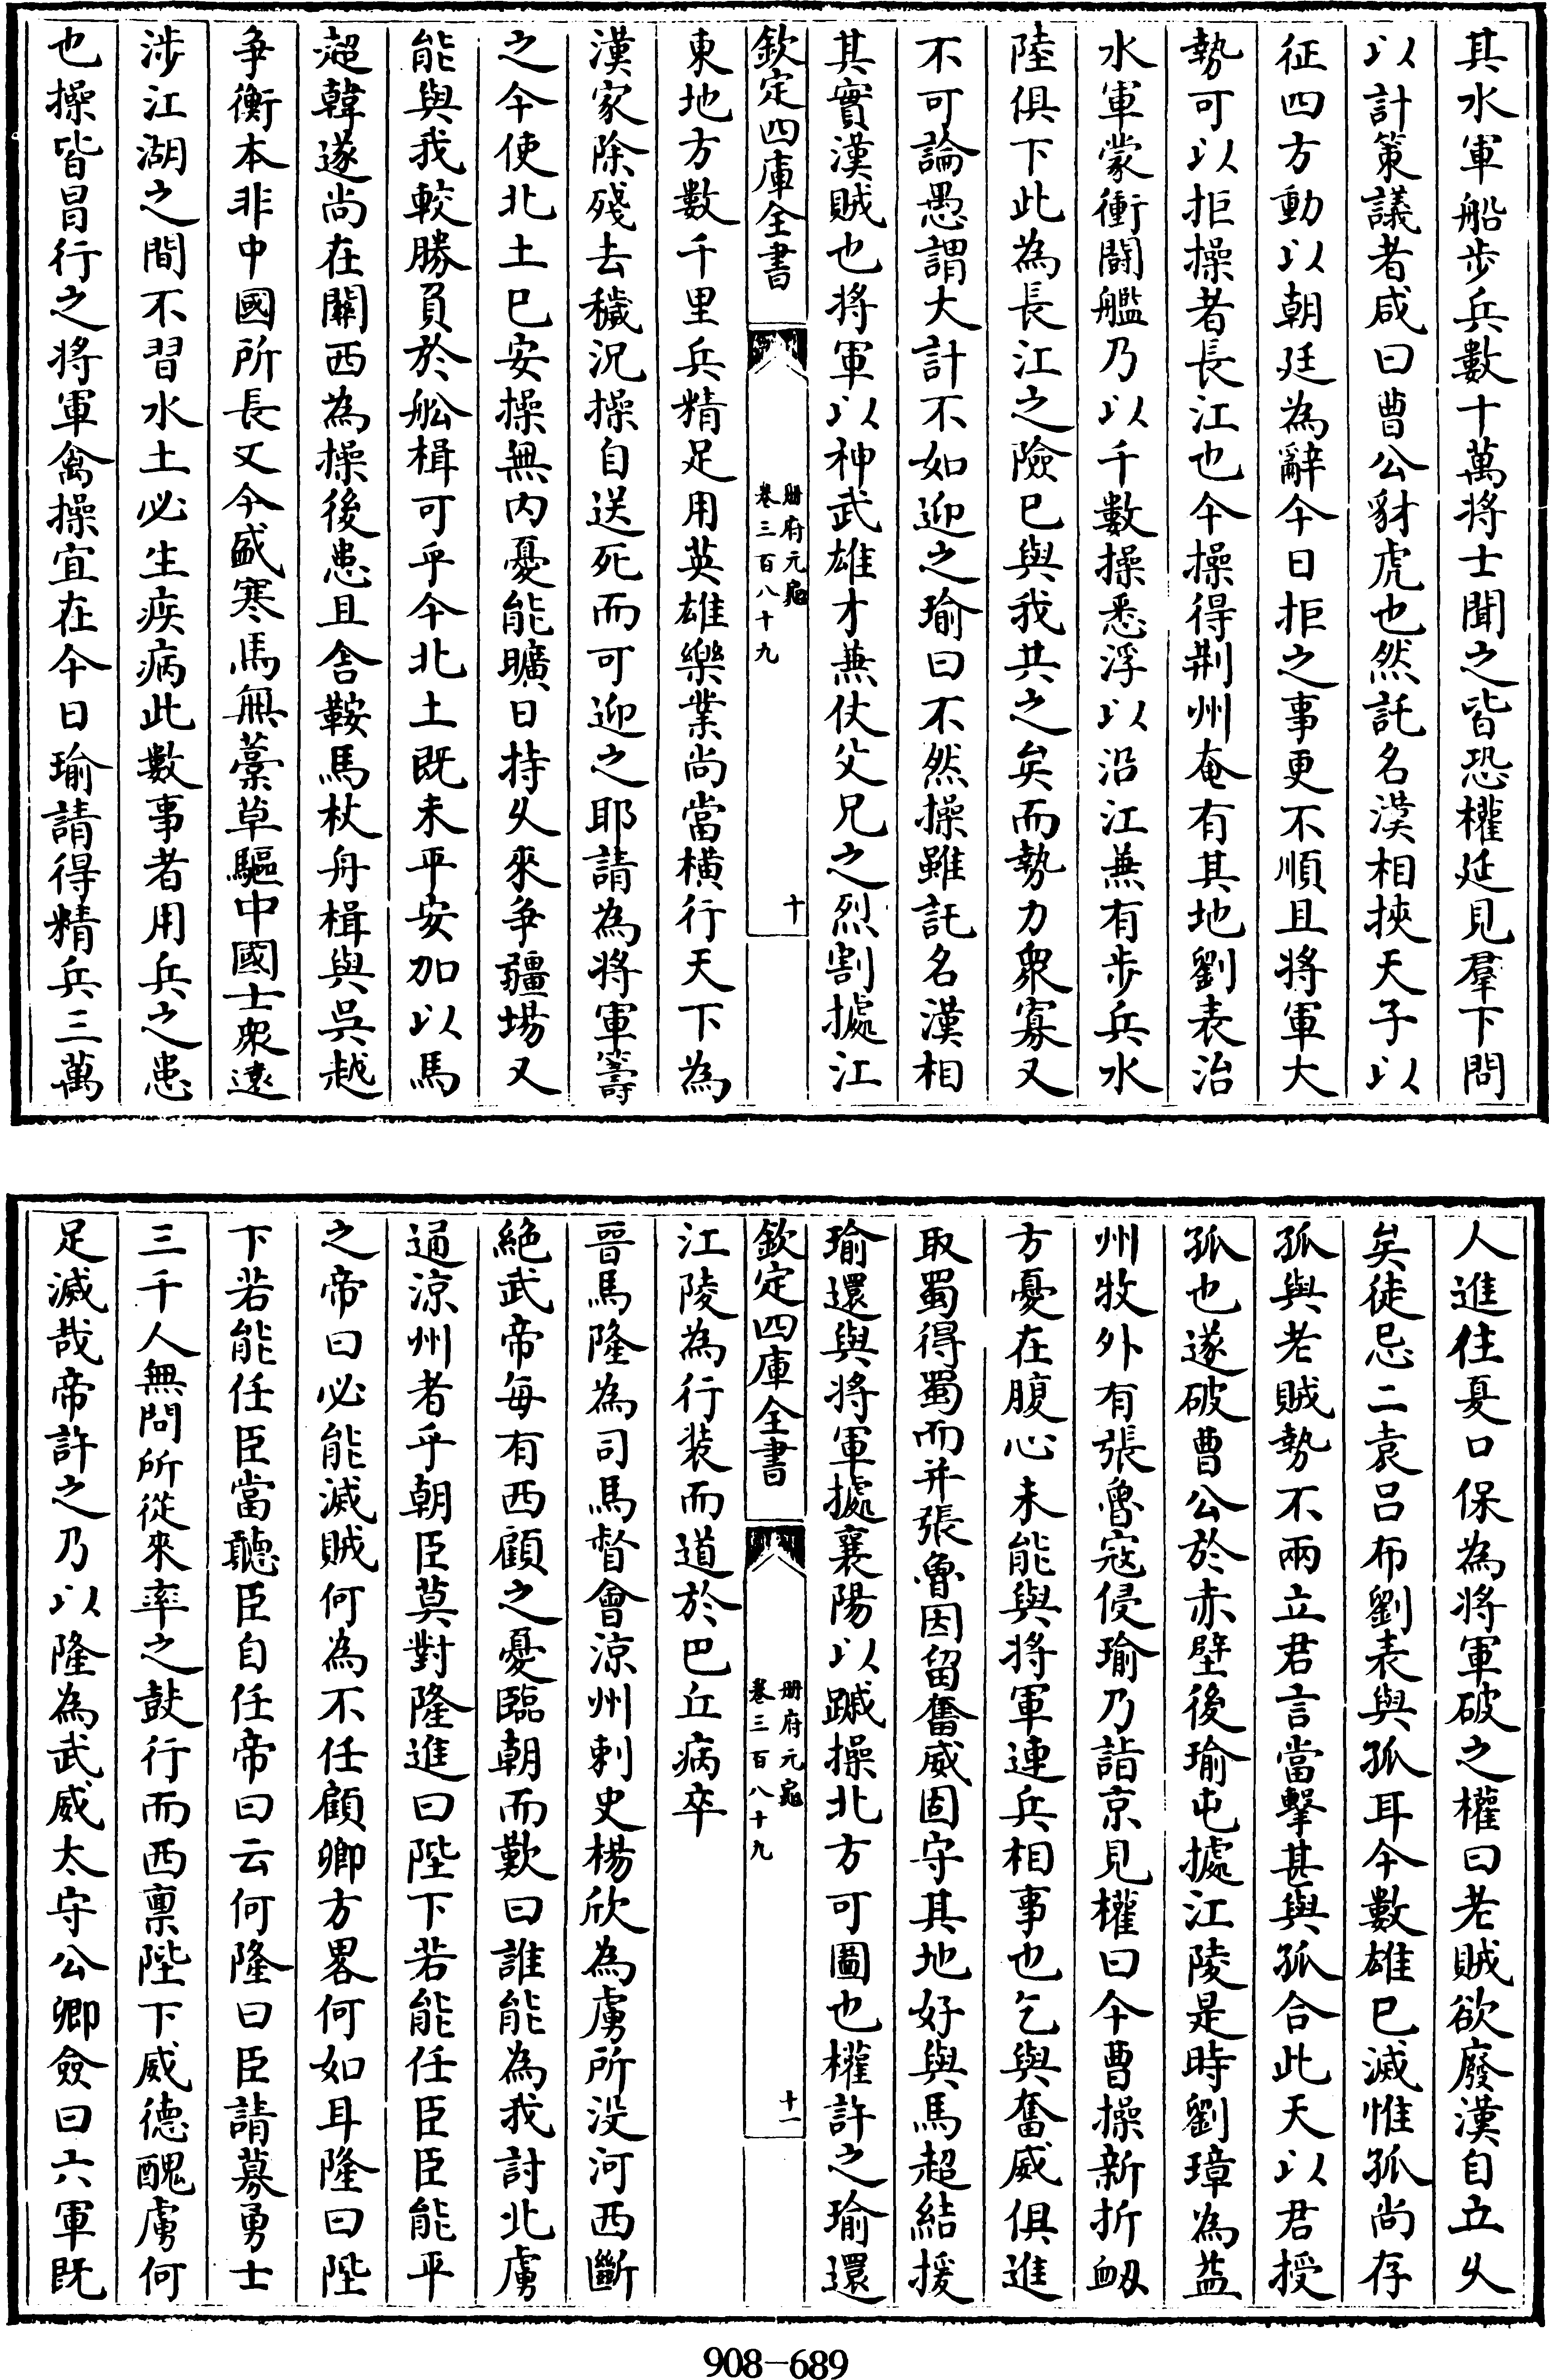 其水軍船步兵數十萬將士聞之皆恐權延見羣下問
以計策議者咸曰曹公豺虎也然託名漢相挾天子以
征四方動以朝廷為辭今日拒之事更不順且將軍大
勢可以拒操者長江也今操得荆州奄有其地劉表治
水軍蒙衝鬬艦乃以千數操悉浮以沿江兼有步兵水
陸俱下此為長江之險已與我共之矣而勢力衆寡又
不可論愚謂大計不如迎之瑜曰不然操雖託名漢相
其實漢賊也將軍以神武雄才兼仗父兄之烈割據江
欽定四庫全書
册府元龜
卷三百八十九
十
東地方數千里兵精足用英雄樂業尚當橫行天下為
漢家除殘去穢況操自送死而可迎之耶請為將軍籌
之今使北土已安操無内憂能曠日持久來爭疆場又
能與我較勝負於舩楫可乎今北土既未平安加以馬
超韓遂尚在關西為操後患且舍鞍馬杖舟楫與吳越
爭衡本非中國所長又今盛寒馬無藁草驅中國士衆遠
涉江湖之間不習水土必生疾病此數事者用兵之患
也操皆冒行之將軍禽操宜在今日瑜請得精兵三萬
人進住夏口保為將軍破之權曰老賊欲廢漢自立久
矣徒忌二袁吕布劉表與孤耳今數雄已滅惟孤尚存
孤與老賊勢不兩立君言當擊甚與孤合此天以君授
孤也遂破曹公於赤壁後瑜屯據江陵是時劉璋為益
州牧外有張魯宼侵瑜乃詣京見權曰今曹操新折衂
方憂在腹心未能與將軍連兵相事也乞與奮威俱進
取蜀得蜀而并張魯因留奮威固守其地好與馬超結援
瑜還與將軍據襄陽以蹴操北方可圖也權許之瑜還
欽定四庫全書
册府元龜
卷三百八十九
十一
江陵為行裝而道於巴丘病卒
晉馬隆為司馬督會涼州刺史楊欣為虜所没河西斷
絶武帝每有西顧之憂臨朝而歎曰誰能為我討北虜
通涼州者乎朝臣莫對隆進曰陛下若能任臣臣能平
之帝曰必能滅賊何為不任顧卿方畧何如耳隆曰陛
下若能任臣當聽臣自任帝曰云何隆曰臣請募勇士
三千人無問所從來率之鼓行而西禀陛下威德醜虜何
足滅哉帝許之乃以隆為武威太守公卿僉曰六軍既
908-689